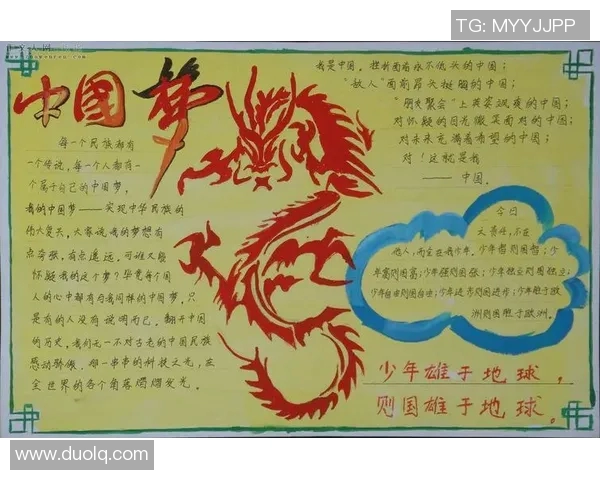 TG: MYYJJPP
中国梦
每一个民族都有
一个传说,每一个人都有一
个属于自己的中国梦。
我的中国梦——实现中华民族的
伟大复兴。大家说,我的梦想有
点夸张,有点遥远。可谁又能
怀疑我的这个梦?毕竟每个国
人的心中都有与我同样的中国梦,只
是有的人没有说明而已。翻开中国
的历史,我们无一不对古老的中国民族
感动骄傲。那一串串的科技之光,在
全世界的各个角落熠熠发光。
我是中国。挫折面前永不低头的中国;
"敌人"面前昂头挺胸的中国;
"朋友聚会"上英姿飒爽的中国;
对怀疑的目光微笑面对的中国;
对未来充满着希望的中国;
对!这就是我
——中国。
今日
之责任,不在
他人,而全在我少年。少年智则国智;少
年富则国富;少年强则国强;少年独立则国独立;
少年自由则国自由;少年进步则国进步;少年胜于欧
洲则国胜于欧洲。
少年雄于地球,
则国雄于地球。
www.duolq.com